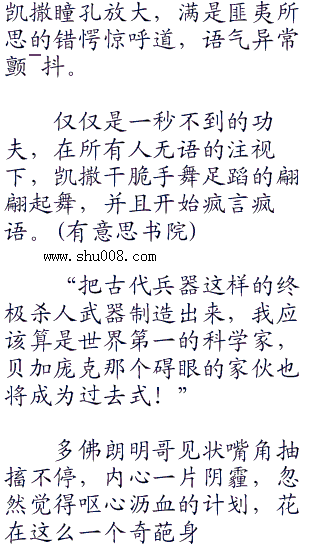 凯撒瞳孔放大，满是匪夷所
思的错愕惊呼道，语气异常
颤¯抖。
仅仅是一秒不到的功
夫，在所有人无语的注视
下，凯撒干脆手舞足蹈的翩
翩起舞，并且开始疯言疯
语。（有意思书院）
www.shu008.com
“把古代兵器这样的终
极杀人武器制造出来，我应
该算是世界第一的科学家，
贝加庞克那个碍眼的家伙也
将成为过去式！”
多佛朗明哥见状嘴角抽
搐不停，内心一片阴霾，忽
然觉得呕心沥血的计划，花
在这么一个奇葩身